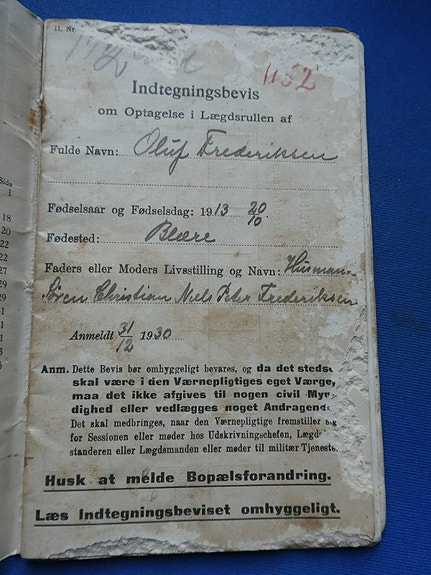 11. Nr.
1152
Indtegningsbevis
om Optagelse i Lægdsrullen af
Fulde Navn: Oluf Frederiksen
Fødselsaar og Fødselsdag: 1913 20/10
Fødested: Blære
Faders eller Moders Livsstilling og Navn: Husman
Søren Christian Niels Peter Frederiksen
Anmeldt 31/12 1930.
Anm. Dette Bevis bør omhyggeligt bevares, og da det stedse
skal være i den Værnepligtiges eget Værge,
maa det ikke afgives til nogen civil Myn
dighed eller vedlægges noget Andragende
Det skal medbringes, naar den Værnepligtige fremstiller sig
for Sessionen eller møder hos Udskrivningschefen, Lægds
standeren eller Lægdsmanden eller møder til militær Tjeneste.
Husk at melde Bopælsforandring.
Læs Indtegningsbeviset omhyggeligt.
Side
1
18
20
22
22
27
25
29
31